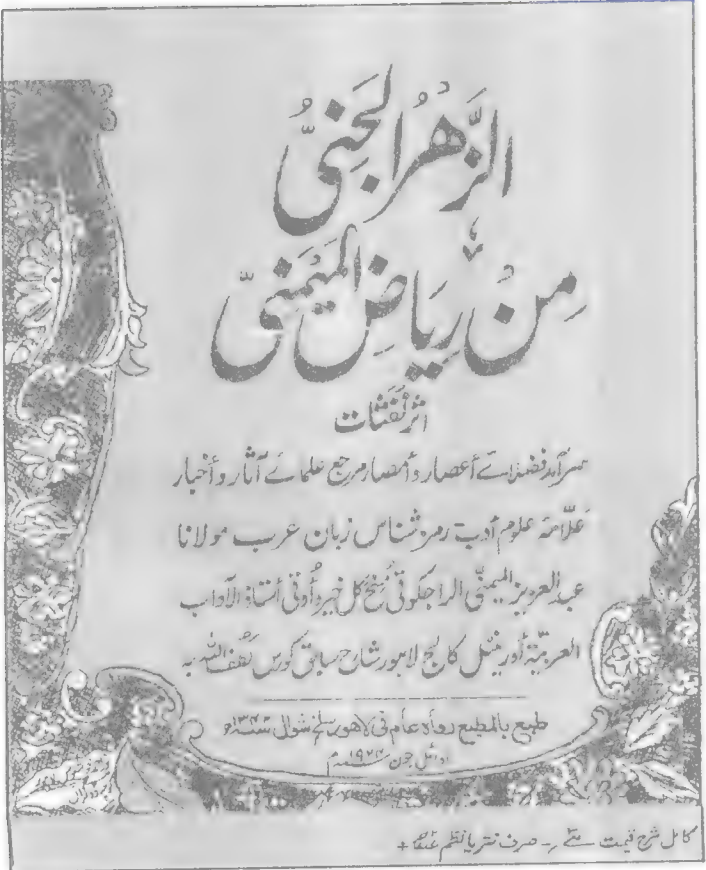 الزَّهْرُ الجَنِيُّ
مِنْ رِيَاضِ المَيْمَنِيّ
اثر نَفَثات
سرآمد فضلائے أعصار و أمصار مرجع علمائے آثار و أخبار
علّامۂ علوم أدب رمز شناس زبان عرب مولانا
عبد العزيز الميمنيّ الراجكوتي مُنِح كل خير و أُوتي أستاذ الآداب
العربيّة أورينٹل كالج لاہور شارح سابق كورس لَطَف اللہ بہ
طبع بالمطبع رفاه عام في لاهور سلخ شوال سنة ١٣٤٢ھ
اوائل جون ١٩٢٤م
كامل شرح قيمت صرف نثر يا نظم